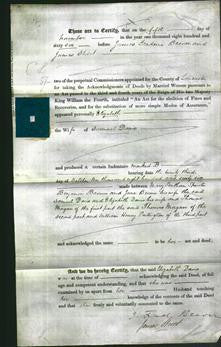 These are to Certify, that on the fifth day of
November in the year one thousand eight hundred and
sixty before James Frederic Beever and
James Street
two of the perpetual Commissioners appointed for the County of
for taking the Acknowledgments of Deeds by Married Women pursuant to
an Act passed in the third and fourth years of the Reign of His late Majesty
King William the Fourth, intituled "An Act for the abolition of Fines and
Recoveries, and for the substitution of more simple Modes of Assurance,"
appeared personally Elizabeth
the Wife of Samuel Davis
and produced a certain Indenture marked B
bearing date the twenty third
day of October One thousand eight hundred and sixty
made between
Benjamin Brown and Jane Brown his wife the said
Samuel Davis and Elizabeth Davis his wife and Thomas
of the first part the said Thomas
second part and William Henry of the third part
and acknowledged the same to be her act and deed.
And we do hereby Certify, that the said Elizabeth Davis
was at the time of acknowledging the said Deed, of full
age and competent understanding, and that she was
examined by us apart from her Husband touching
her knowledge of the contents of the said Deed
and that she freely and voluntarily consented to the same.
James Street